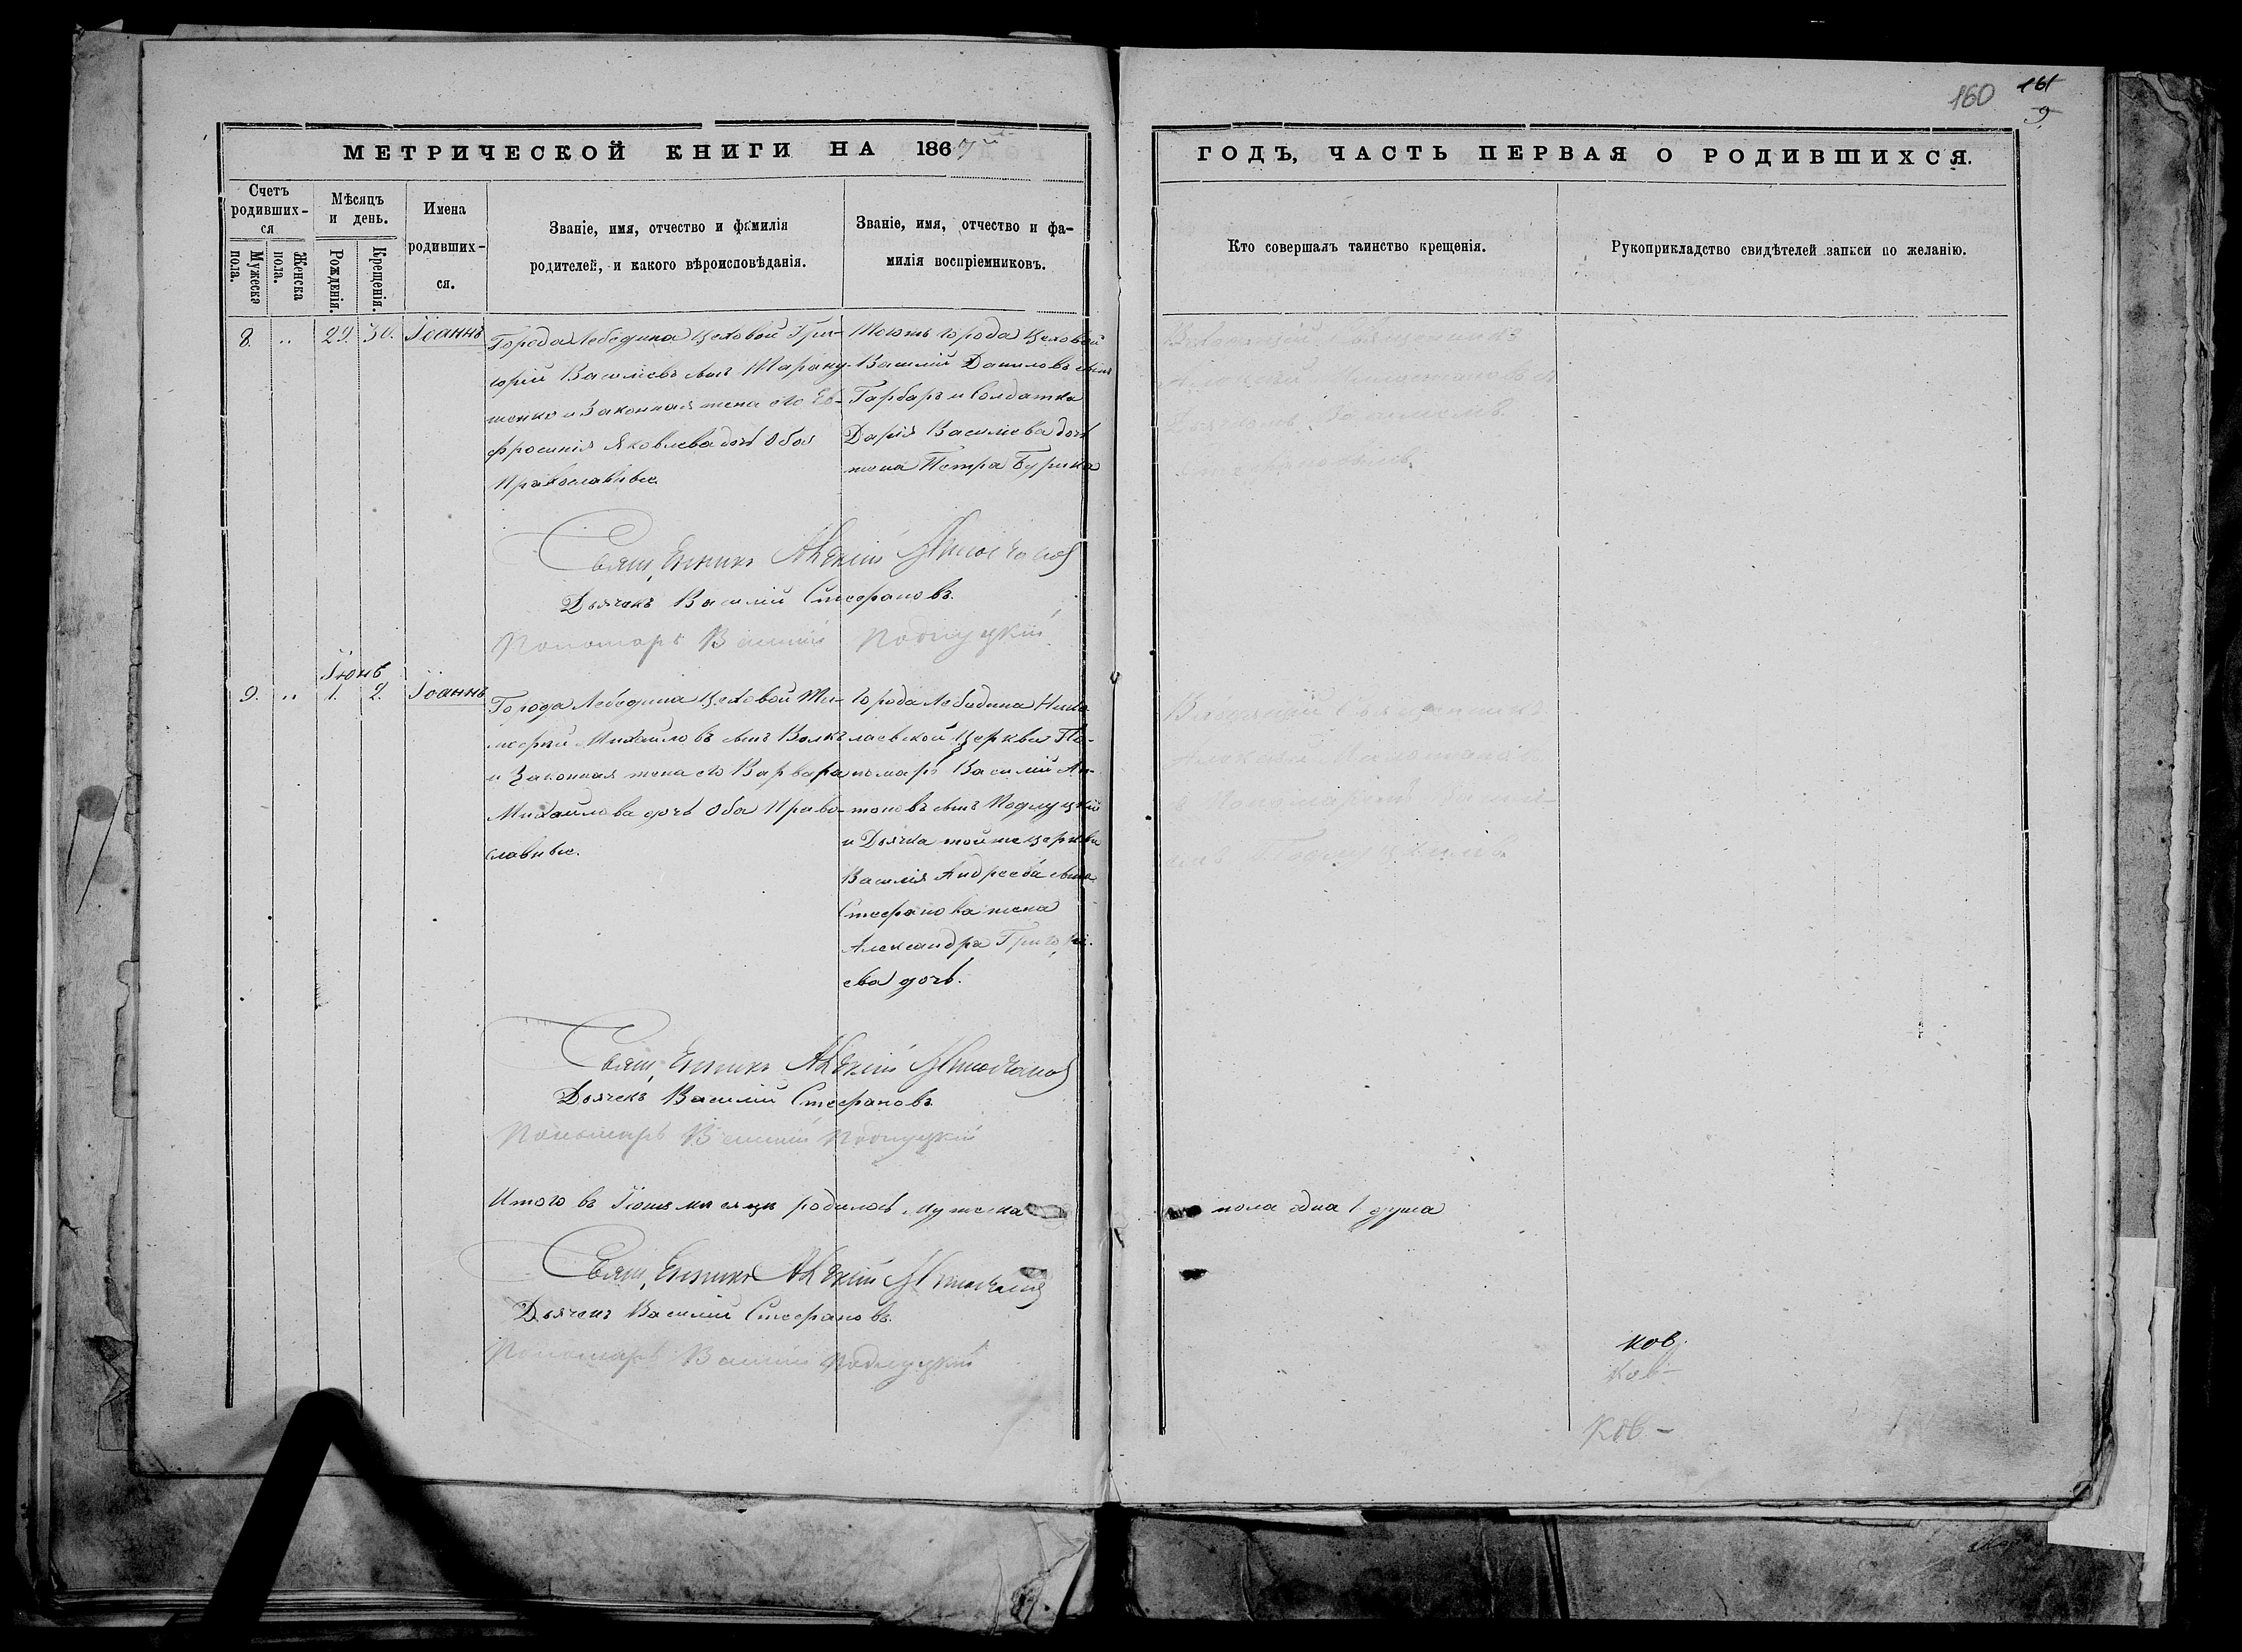 160 161
9
МЕТРИЧЕСКОЙ КНИГИ НА 1867й
ГОДЪ, ЧАСТЬ ПЕРВАЯ О РОДИВШИХСЯ.
Счетъ родивших-ся
Мужеска пола.
Женска пола.
Мѣсяцъ и день.
Рожденія.
Крещенія.
Имена родивших-ся.
Званіе, имя, отчество и фамилія
родителей, и какого вѣроисповѣданія.
Званіе, имя, отчество и фа-
милія воспріемниковъ.
Кто совершалъ таинство крещенія.
Рукоприкладство свидѣтелей записи по желанію.
8. „ 29. 30. Іоаннъ
Города Лебедина Цеховой Гри-
горій Василіевъ сынъ Таран
и Законная жена его Ев-
фросинія Яковлева дочь Оба
Православные.
города Цеховой
Василій Даниловъ сынъ
Гарбаръ и Солдатка
Дарія Василіева дочь
жена Петра Бурика
Священникъ
Дьячекъ Василій Стефановъ.
Пономарь Василій Подлуцкій
Священникъ
Алексій
Дьячкомъ Василіемъ
Стефановымъ.
Іюнь
9. „ 1. 2. Іоаннъ
Города Лебедина Цеховой Ти-
мофей Михайловъ сынъ Волкъ
и Законная жена его Варвара
Михайлова дочь Оба Право-
славные.
Города Лебедина Нико-
лаевской Церкви По-
номарь Василій Ан-
тоновъ сынъ Подлуцкій
и Дьячка той же Церкви
Василія Андреева сына
Стефанова жена
Александра Григорі-
ева дочь.
Священникъ
Алексій
съ Пономаремъ Василі-
емъ Подлуцкимъ.
Священникъ
Дьячекъ Василій Стефановъ
Пономарь Василій Подлуцкій
Итого въ Іюнѣ месяцѣ родилось мужеска
пола одна 1 душа
Священникъ
Дьячекъ Василій Стефановъ.
Пономарь Василій Подлуцкій
ков.
Ков-
Ков-